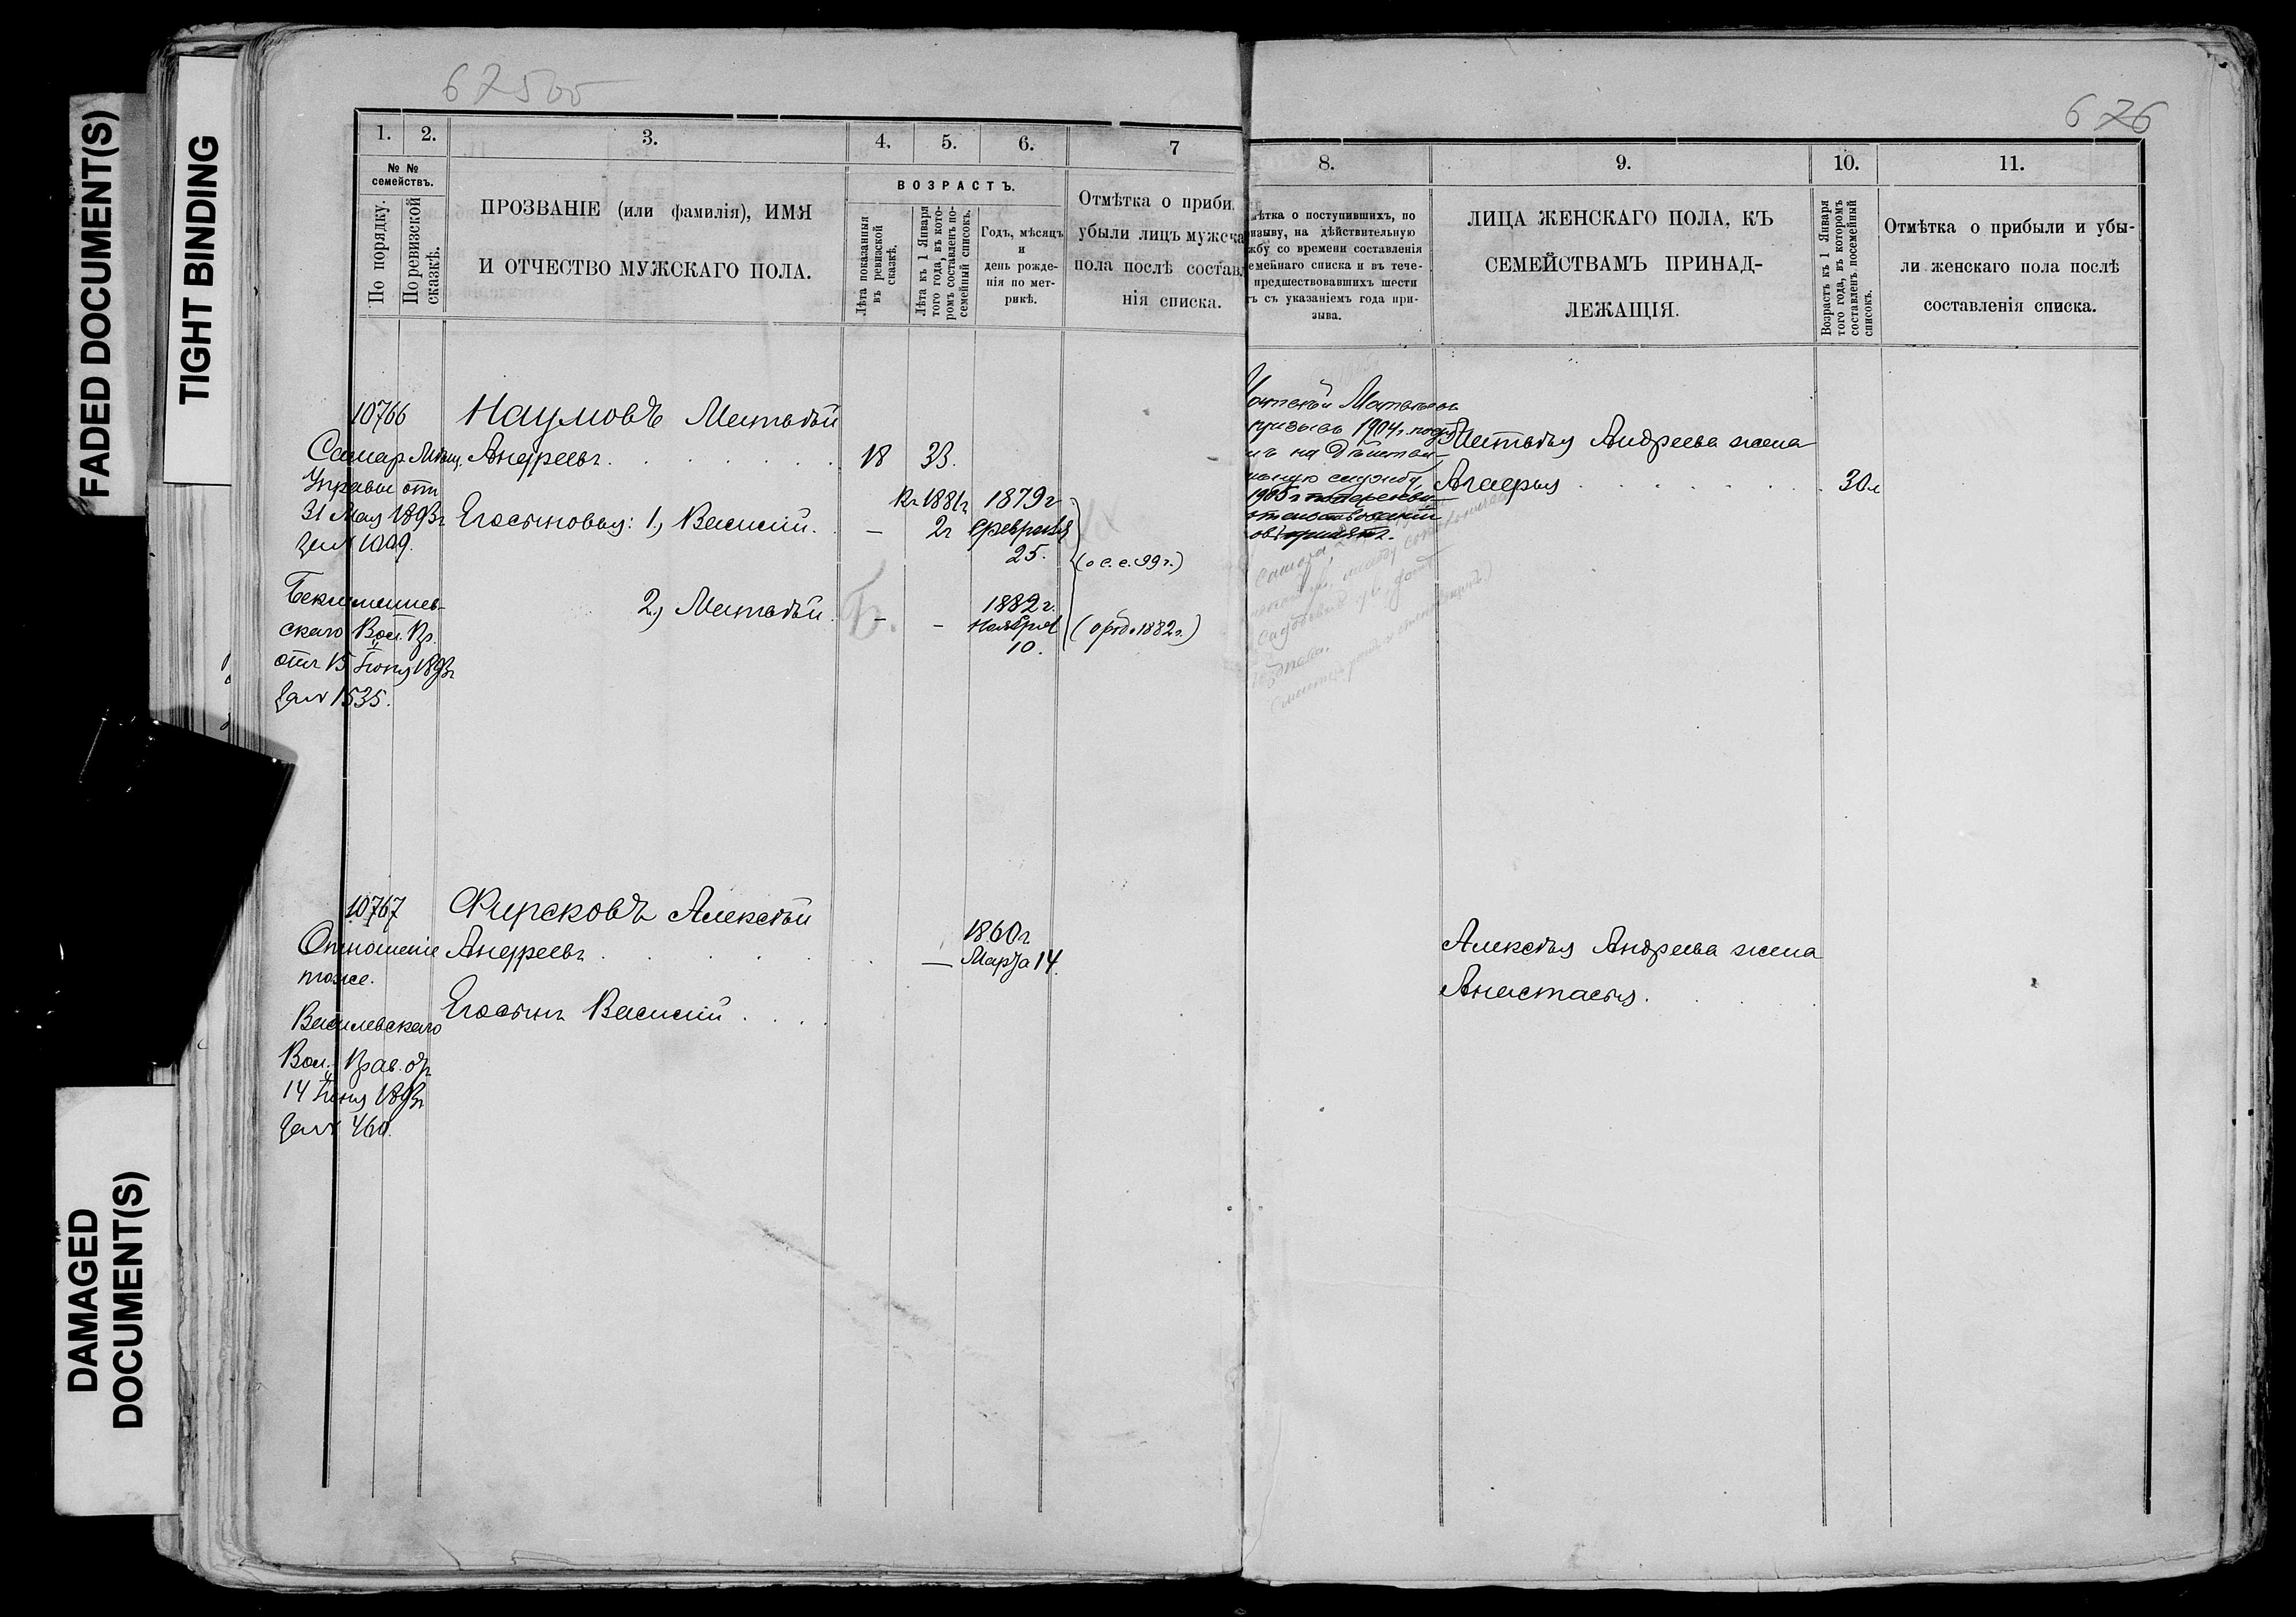 FADED DOCUMENT(S)
TIGHT BINDING
DAMAGED
DOCUMENT(S)
675об
1. 2. 3. 4. 5. 6. 7
№ №
семействъ.
По порядку.
По ревизской
сказкѣ.
ПРОЗВАНІЕ (или фамилія), ИМЯ
И ОТЧЕСТВО МУЖСКАГО ПОЛА.
ВОЗРАСТЪ.
Лѣта показанныя
въ ревизской
сказкѣ.
Лѣта къ 1 Января
того года, въ кото-
ромъ составленъ по-
семейный списокъ.
Годъ, мѣсяцъ
и
день рожде-
нія по мет-
рикѣ.
Отмѣтка о приби
убыли лицъ мужска
пола послѣ составл
нія списка.
10766
Самар. Мѣщ.
Управы отъ
31 Мая 1893г
за № 1099.
Бекетишев-
скаго Вол. Пр.
отъ 15 Іюня 1893г
за № 1535.
Наумовъ Матвѣй
Андреевъ . . . . . . 18 33.
Къ 1881г 1879г
Его сыновья: 1, Василій. — 2г Февраля
25. (о с. с. 99г.)
2, Матвѣй. — - 1882г.
Ноября (о род. 1882г.)
10.
10767
Отношеніе
тоже.
Василевскаго
Вол. Прав. отъ
14 Іюня 1893г
за № 460.
Фирсковъ Алексѣй
Андреевъ . . . . . — 1860г
Марта 14.
Его сынъ Василій . . . .
676
8. 9. 10. 11.
ѣтка о поступившихъ, по
изыву, на дѣйствительную
жбу со времени составленія
емейнаго списка и въ тече-
предшествовавшихъ шести
ъ съ указаніемъ года при-
зыва.
ЛИЦА ЖЕНСКАГО ПОЛА, КЪ
СЕМЕЙСТВАМЪ ПРИНАД-
ЛЕЖАЩІЯ.
Возрастъ къ 1 Января
того года, въ которомъ
составленъ посемейный
списокъ.
Отмѣтка о прибыли и убы-
ли женскаго пола послѣ
составленія списка.
1904г.
на Дѣйстви-
службу,
1905г
Матвѣя Андреева жена
. . . . . . . 30л
Алексѣя Андреева жена
Анастасья. . . .